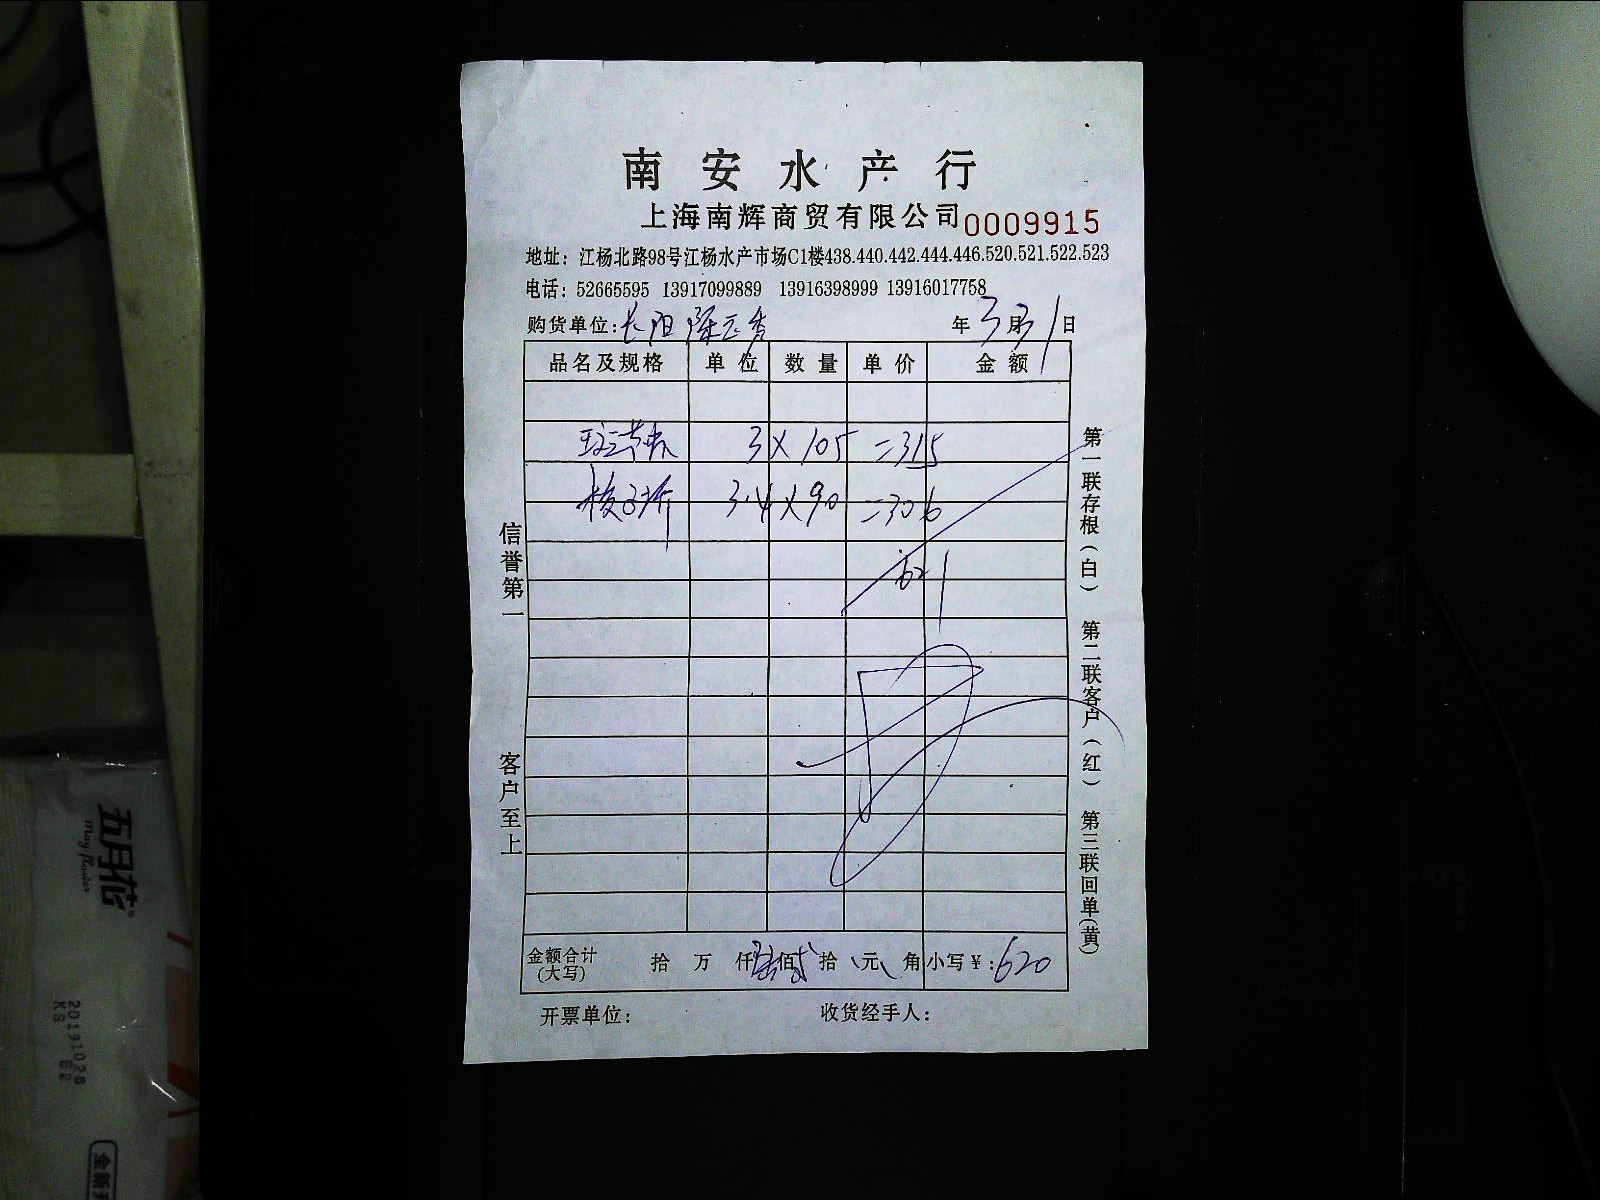 南安水产行
上海南辉商贸有限公司 0009915
地址：江杨北路98号江杨水产市场C1楼438.440.442.444.446.520.521.522.523
电话：52665595 13917099889 13916398999 13916017758
购货单位：长阳 年3月31日
品名及规格 单位 数量 单价 金额
3×105=315
3.4×90=306
621
金额合计(大写) 拾 万 仟陆佰贰拾 元 角 小写¥：620
开票单位： 收货经手人：
信誉第一 客户至上
第一联存根(白) 第二联客户(红) 第三联回单(黄)
五月花
May Flower
20191028
KS E2